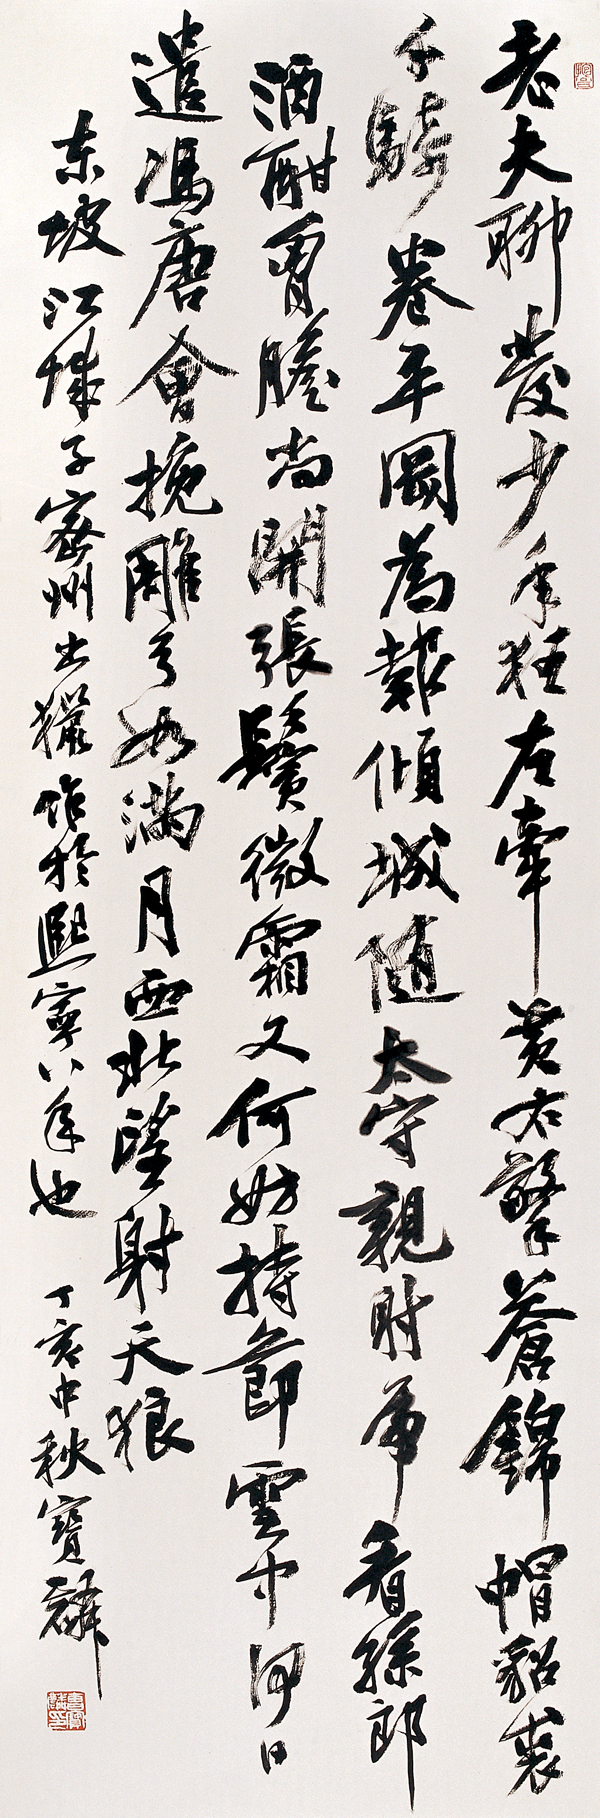 老夫聊發少年狂左牽黃右擎蒼錦帽貂裘
千騎卷平岡為報傾城隨太守親射虎看孫郎
酒酣胷膽尚開張鬢微霜又何妨持節雲中何日
遣馮唐會挽雕弓如滿月西北望射天狼
东坡江城子密州出獵作於熙寧八年也 丁亥中秋寶麟